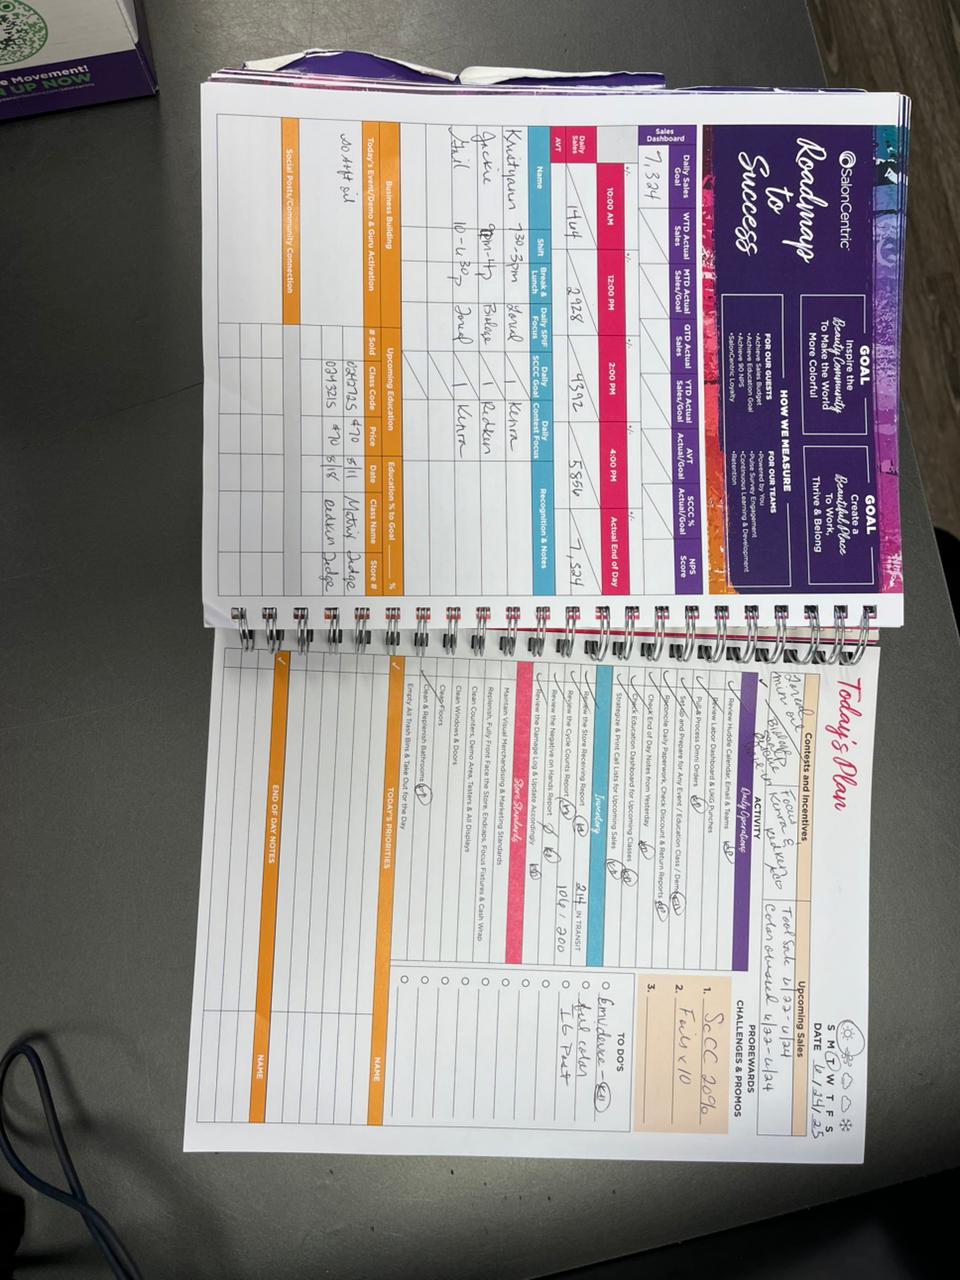 SalonCentric
Roadmap
to
Success
GOAL
Inspire the
Beauty Community
To Make the World
More Colorful
GOAL
Create a
Beautiful Place
To Work,
Thrive & Belong
HOW WE MEASURE
FOR OUR GUESTS
•Achieve Sales Budget
•Achieve Education Goal
•Achieve 90 NPS
•SalonCentric Loyalty
FOR OUR TEAMS
•Powered by You
•Pulse Survey Engagement
•Continuous Learning & Development
•Retention
Sales Dashboard
Daily Sales Goal WTD Actual Sales MTD Actual Sales/Goal QTD Actual Sales YTD Actual Sales/Goal AVT Actual/Goal SCCC % Actual/Goal NPS Score
7,324
+/- +/- +/- +/- +/-
10:00 AM 12:00 PM 2:00 PM 4:00 PM Actual End of Day
Daily Sales 1464 2928 4392 5856 7,324
AVT
Name Shift Break & Lunch Daily SPIF Focus Daily SCCC Goal Daily Contest Focus Recognition & Notes
Kristyann 730-3pm Loreal 1 Kenra
Jackie 9pm-4p Biolage 1 Redken
Gail 10-430p Loreal 1 Kenra
Business Building Upcoming Education Education % to Goal ______ %
Today's Event/Demo & Guru Activation # Sold Class Code Price Date Class Name Store #
oil 0242725 $70 8/11 Matrix
0243215 $70 8/18 Redken
Social Posts/Community Connection
Today's Plan
S M T W T F S
DATE 6/24/25
Contests and Incentives Upcoming Sales
Loreal mini oil
Biolage Scalp
Focus Kenra & Redken
Tool Sale 6/22-6/24
Color obsessed 6/22-6/24
ACTIVITY
Daily Operations
Review Huddle Calendar, Email & Teams
Review Labor Dashboard & UKG Punches
Pull & Process Omni Orders
Set up and Prepare for Any Event / Education Class / Demo
Reconcile Daily Paperwork, Check Discount & Return Reports
Check End of Day Notes from Yesterday
Check Education Dashboard for Upcoming Classes
Strategize & Print Call Lists for Upcoming Sales
Inventory
Review the Store Receiving Report 214 IN TRANSIT
Review the Cycle Counts Report 106 / 200
Review the Negative on Hands Report
Review the Damage Log & Update Accordingly
Store Standards
Maintain Visual Merchandising & Marketing Standards
Replenish, Fully Front Face the Store, Endcaps, Focus Fixtures & Cash Wrap
Clean Counters, Demo Area, Testers & All Displays
Clean Windows & Doors
Clean Floors
Clean & Replenish Bathrooms
Empty All Trash Bins & Take Out for the Day
PROREWARDS
CHALLENGES & PROMOS
1. ScCC 20%
2. Foils x 10
3.
TO DO'S
Emv device -
fill color
IG Post
TODAY'S PRIORITIES NAME
END OF DAY NOTES NAME
Movement!
UP NOW